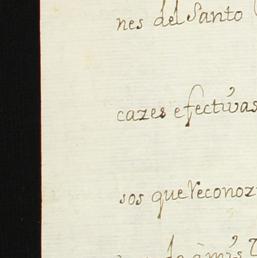 nes del Santo
cazes efectivas
sos que reconoz
de à mis